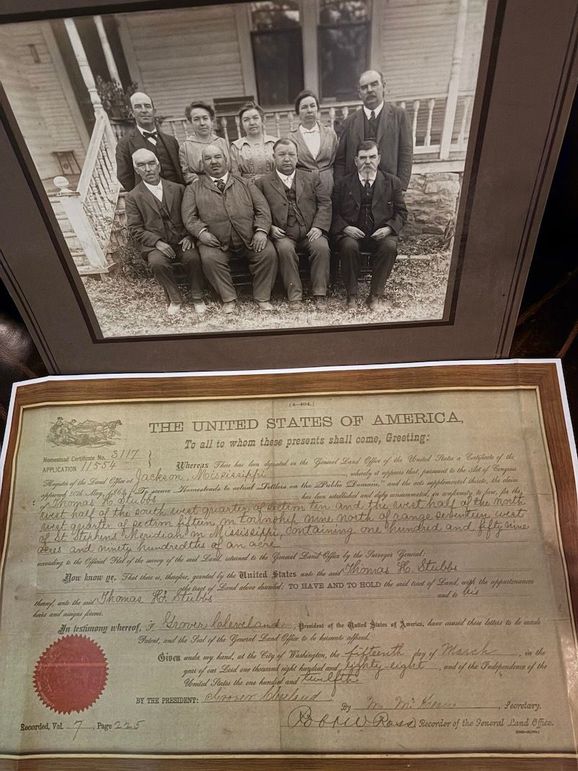 (4-404.)
THE UNITED STATES OF AMERICA,
To all to whom these presents shall come, Greeting:
Homestead Certificate No. 3117
APPLICATION 11554
Whereas There has been deposited in the General Land Office of the United States a Certificate of the
Register of the Land Office at Jackson, Mississippi, whereby it appears that, pursuant to the Act of Congress
approved 20th May, 1862, "To secure Homesteads to actual Settlers on the Public Domain," and the acts supplemental thereto, the claim
of Thomas H. Stubbs has been established and duly consummated, in conformity to law, for the
west half of the south west quarter of section ten and the west half of the north
west quarter of section fifteen in township nine north of range seventeen west
of St Stephens Meridian in Mississippi, containing one hundred and fifty nine
acres and ninety hundredths of an acre
according to the Official Plat of the survey of the said Land, returned to the General Land Office by the Surveyor General:
Now know ye, That there is, therefore, granted by the United States unto the said Thomas H. Stubbs
the tract of Land above described; TO HAVE AND TO HOLD the said tract of Land, with the appurtenances
thereof, unto the said Thomas H. Stubbs and to his
heirs and assigns forever.
In testimony whereof, I, Grover Cleveland, President of the United States of America, have caused these letters to be made
Patent, and the Seal of the General Land Office to be hereunto affixed.
Given under my hand, at the City of Washington, the fifteenth day of March, in the
year of our Lord one thousand eight hundred and eighty eight, and of the Independence of the
United States the one hundred and twelfth
BY THE PRESIDENT: Grover Cleveland
By M. McKean, Secretary.
Robt W. Ross Recorder of the General Land Office.
Recorded, Vol. 7, Page 225